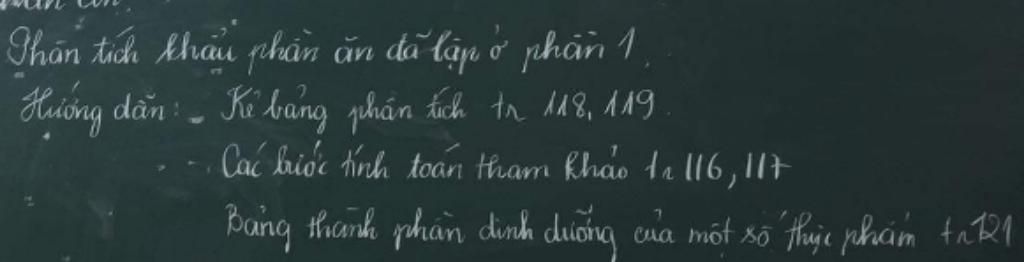 Phân tích khẩu phần ăn đã lập ở phần 1.
Hướng dẫn: - Kẻ bảng phân tích tr 118, 119.
- Các bước tính toán tham khảo tr 116, 117
Bảng thành phần dinh dưỡng của một số thực phẩm tr 121